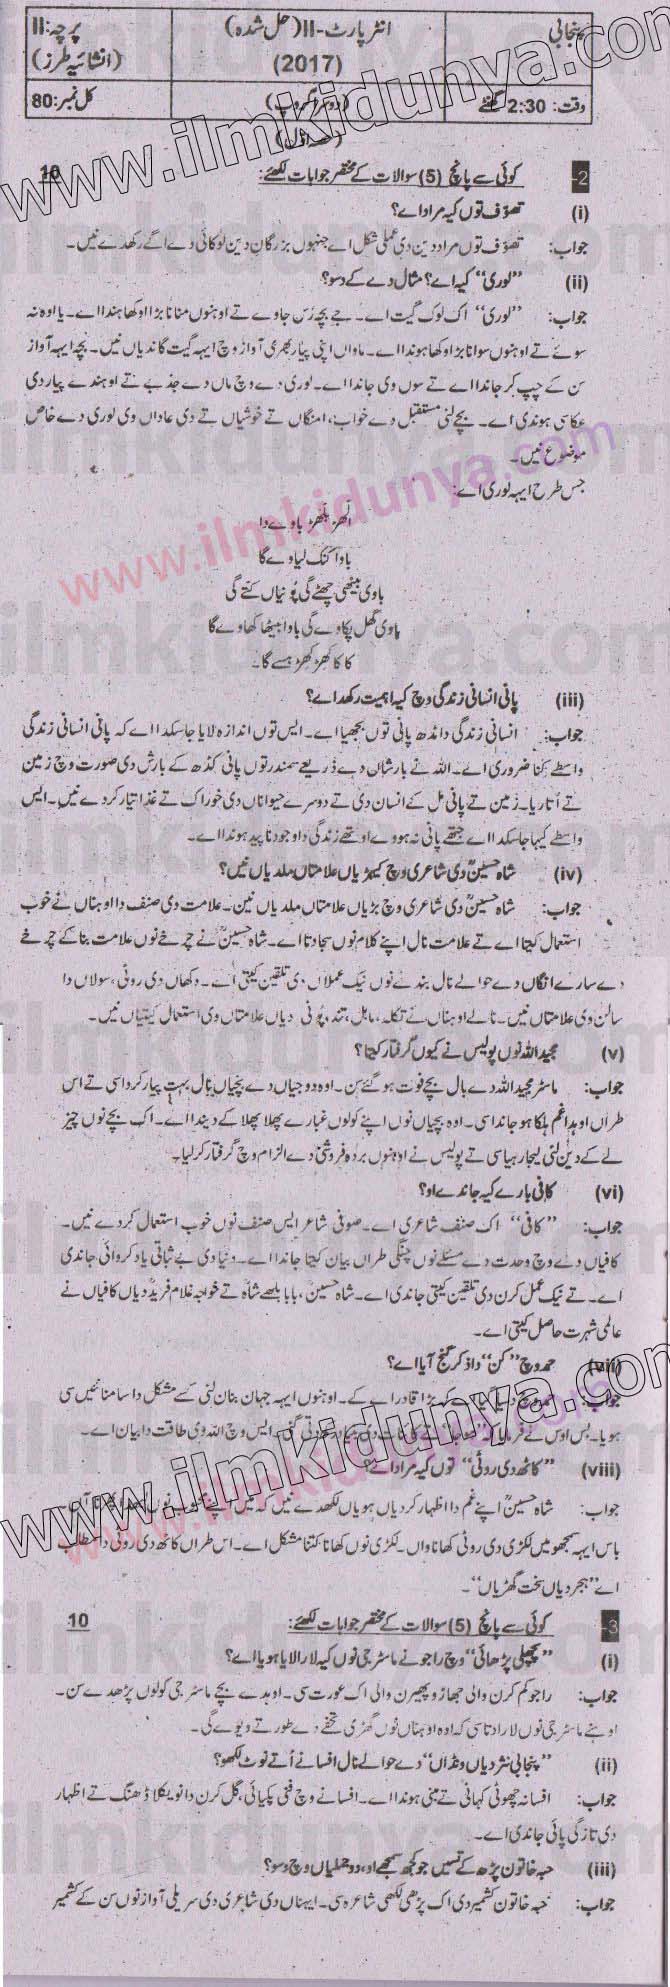 پنجابی
انٹر پارٹ-II (حل شدہ)
پرچہ: II
(2017)
(انشائیہ طرز)
وقت: 2:30 گھنٹے
(دوسرا گروپ)
کل نمبر: 80
(حصہ اوّل)
2- کوئی سے پانچ (5) سوالات کے مختصر جوابات لکھئے: 10
(i) تصوّف توں کیہ مراد اے؟
جواب: تصوّف توں مراد دین دی عملی شکل اے جنہوں بزرگانِ دین لوکائی دے اگے رکھدے نیں۔
(ii) ''لوری'' کیہ اے؟ مثال دے کے دسو؟
جواب: ''لوری'' اک لوک گیت اے۔ جے بچہ رُس جاوے تے اوہنوں منانا بڑا اوکھا ہندا اے۔ یا اوہ نہ
سوئے تے اوہنوں سوانا بڑا اوکھا ہوندا اے۔ ماواں اپنی پیار بھری آواز وچ ایہہ گیت گاندیاں نیں۔ بچہ ایہہ آواز
سن کے چپ کر جاندا اے تے سوں وی جاندا اے۔ لوری دے وچ ماں دے جذبے تے اوہندے پیار دی
عکاسی ہوندی اے۔ بچے لئی مستقبل دے خواب، امنگاں تے خوشیاں تے دی عاداں وی لوری دے خاص
موضوع نیں۔
جس طرح ایہہ لوری اے:
الھڑ بلھڑ باوے دا
باوا کنک لیاوے گا
باوی بیٹھی چھٹے گی پُونیاں کتے گی
باوی گھل پکاوے گی باوا بیٹھا کھاوے گا
کاکا کھڑ کھڑ ہسے گا۔
(iii) پانی انسانی زندگی وچ کیہ اہمیت رکھدا اے؟
جواب: انسانی زندگی دا مُڈھ پانی توں بجھیا اے۔ ایس توں اندازہ لایا جا سکدا اے کہ پانی انسانی زندگی
واسطے کنا ضروری اے۔ اللہ نے بارشاں دے ذریعے سمندر توں پانی کڈھ کے بارش دی صورت وچ زمین
تے اُتاریا۔ زمین تے پانی مل کے انسان دی تے دوسرے حیواناں دی خوراک تے غذا تیار کردے نیں۔ ایس
واسطے کہیا جا سکدا اے جتھے پانی نہ ہووے اوتھے زندگی دا وجود ناپید ہوندا اے۔
(iv) شاہ حسینؒ دی شاعری وچ کیہڑیاں علامتاں ملدیاں نیں؟
جواب: شاہ حسینؒ دی شاعری وچ بڑیاں علامتاں ملدیاں نین۔ علامت دی صنف دا اوہناں نے خوب
استعمال کیتا اے تے علامت نال اپنے کلام نوں سجا دتا اے۔ شاہ حسینؒ نے چرخے نوں علامت بنا کے چرخے
دے سارے انگاں دے حوالے نال بندے نوں نیک عملاں دی تلقین کیتی اے۔ دکھاں دی روٹی، سولاں دا
سالن وی علامتاں نیں۔ نالے اوہناں نے تکلہ، ماہل، تند، پُونی دیاں علامتاں وی استعمال کیتیاں نیں۔
(v) مجید اللہ نوں پولیس نے کیوں گرفتار کیتا؟
جواب: ماسٹر مجید اللہ دے بال بچے فوت ہو گئے سن۔ اوہ دوجیاں دے بچیاں نال بہت پیار کردا سی تے اس
طراں اوہدا غم ہلکا ہو جاندا سی۔ اوہ بچیاں نوں اپنے کولوں غبارے پھلا پھلا کے دیندا اے۔ اک بچے نوں چیز
لے کے دین لئی لیجا رہیا سی تے پولیس نے اوہنوں بردہ فروشی دے الزام وچ گرفتار کر لیا۔
(vi) کافی بارے کیہ جاندے او؟
جواب: ''کافی'' اک صنف شاعری اے۔ صوفی شاعر ایس صنف نوں خوب استعمال کردے نیں۔
کافیاں دے وچ وحدت دے مسئلے نوں چنگی طراں بیان کیتا جاندا اے۔ دنیا دی بے ثباتی یاد کروائی جاندی
اے۔ تے نیک عمل کرن دی تلقین کیتی جاندی اے۔ شاہ حسینؒ، بابا بلھے شاہؒ تے خواجہ غلام فریدؒ دیاں کافیاں نے
عالمی شہرت حاصل کیتی اے۔
(vii) حمد وچ ''کُن'' دا ذکر کنج آیا اے؟
جواب: حمد وچ کے بڑا قادر اے کے۔ اوہنوں ایہہ جہان بنان لئی کسے مشکل دا سامنا نئیں سی
ہویا۔ بس اوس نے فرمایا ایس وچ اللہ دی طاقت دا بیان اے۔
(viii) ''کاٹھ دی روٹی'' توں کیہ مراد اے؟
جواب: شاہ حسینؒ اپنے غم دا اظہار کردیاں ہویاں لکھدے نیں کہ میں اپنے
باس ایہہ سمجھو میں لکڑی دی روٹی کھاناواں۔ لکڑی نوں کھانا کتنا مشکل اے۔ اس طراں کاٹھ دی روٹی دا مطلب
اے ''ہجر دیاں سخت گھڑیاں''۔
3- کوئی سے پانچ (5) سوالات کے مختصر جوابات لکھئے: 10
(i) ''پچھلی پڑھائی'' وچ راجو نے ماسٹر جی نوں کیہ لارا لایا ہویا اے؟
جواب: راجو کم کرن والی جھاڑو پھیرن والی اک عورت سی۔ اوہدے بچے ماسٹر جی کولوں پڑھدے سن۔
اوہنے ماسٹر جی نوں لارا دتا سی کہ اوہ اوہناں نوں گھڑی تحفے دے طور تے دیوے گی۔
(ii) ''پنجابی نثر دیاں ونڈاں'' دے حوالے نال افسانے اُتے نوٹ لکھو؟
جواب: افسانہ چھوٹی کہانی تے مبنی ہوندا اے۔ افسانے وچ فنی پکیائی، گل کرن دا نویکلا ڈھنگ تے اظہار
دی تازگی پائی جاندی اے۔
(iii) حبہ خاتون پڑھ کے تسیں جو کجھ سمجھے او، دو جملیاں وچ دسو؟
جواب: حبہ خاتون کشمیر دی اک پڑھی لکھی شاعرہ سی۔ ایہناں دی شاعری دی سریلی آواز نوں سن کے کشمیر
www.ilmkidunya.com
www.ilmkidunya.com
www.ilmkidunya.com